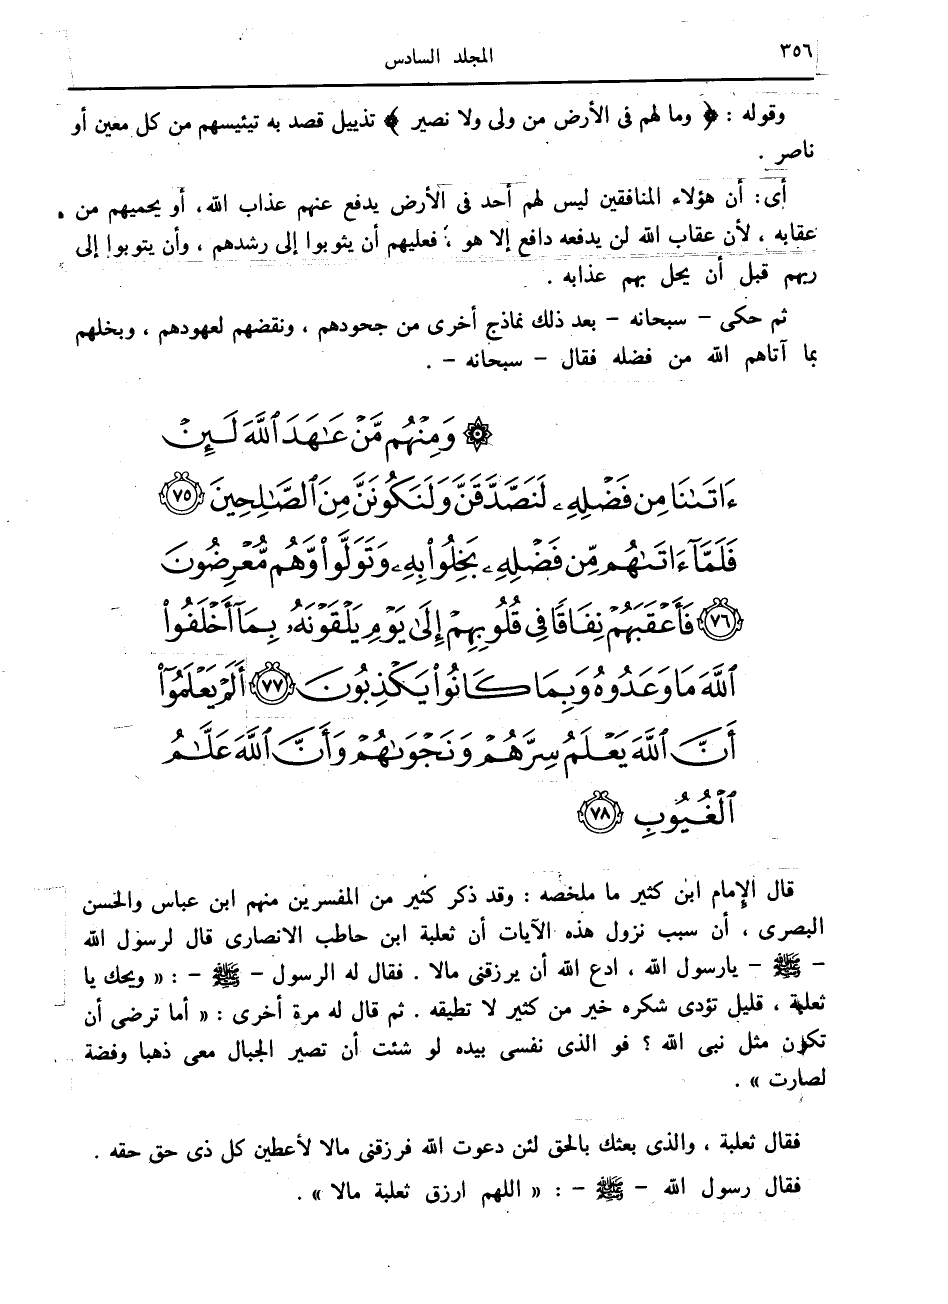 ٣٥٦
المجلد السادس
وقوله : ﴿ وما لهم فى الأرض من ولى ولا نصير ﴾ تذييل قصد به تيئيسهم من كل معين أو
ناصر .
أى: أن هؤلاء المنافقين ليس لهم أحد فى الأرض يدفع عنهم عذاب الله، أو يحميهم من
عقابه ، لأن عقاب الله لن يدفعه دافع إلا هو ، فعليهم أن يثوبوا إلى رشدهم ، وأن يتوبوا إلى
ربهم قبل أن يحل بهم عذابه .
ثم حكى – سبحانه – بعد ذلك نماذج أخرى من جحودهم ، ونقضهم لعهودهم ، وبخلهم
بما آتاهم الله من فضله فقال – سبحانه – .
۞ وَمِنْهُم مَّنْ عَٰهَدَ ٱللَّهَ لَئِنْ
ءَاتَىٰنَا مِن فَضْلِهِۦ لَنَصَّدَّقَنَّ وَلَنَكُونَنَّ مِنَ ٱلصَّٰلِحِينَ ٧٥
فَلَمَّآ ءَاتَىٰهُم مِّن فَضْلِهِۦ بَخِلُوا۟ بِهِۦ وَتَوَلَّوا۟ وَّهُم مُّعْرِضُونَ
٧٦ فَأَعْقَبَهُمْ نِفَاقًا فِى قُلُوبِهِمْ إِلَىٰ يَوْمِ يَلْقَوْنَهُۥ بِمَآ أَخْلَفُوا۟
ٱللَّهَ مَا وَعَدُوهُ وَبِمَا كَانُوا۟ يَكْذِبُونَ ٧٧ أَلَمْ يَعْلَمُوٓا۟
أَنَّ ٱللَّهَ يَعْلَمُ سِرَّهُمْ وَنَجْوَىٰهُمْ وَأَنَّ ٱللَّهَ عَلَّٰمُ
ٱلْغُيُوبِ ٧٨
قال الإمام ابن كثير ما ملخصه : وقد ذكر كثير من المفسرين منهم ابن عباس والحسن
البصرى ، أن سبب نزول هذه الآيات أن ثعلبة ابن حاطب الانصارى قال لرسول الله
– ﷺ – يارسول الله ، ادع الله أن يرزقنى مالا . فقال له الرسول – ﷺ – : « ويحك يا
ثعلبة ، قليل تؤدى شكره خير من كثير لا تطيقه . ثم قال له مرة أخرى : « أما ترضى أن
تكون مثل نبى الله ؟ فو الذى نفسى بيده لو شئت أن تصير الجبال معى ذهبا وفضة
لصارت » .
فقال ثعلبة ، والذى بعثك بالحق لئن دعوت الله فرزقنى مالا لأعطين كل ذى حق حقه .
فقال رسول الله – ﷺ – : « اللهم ارزق ثعلبة مالا » .